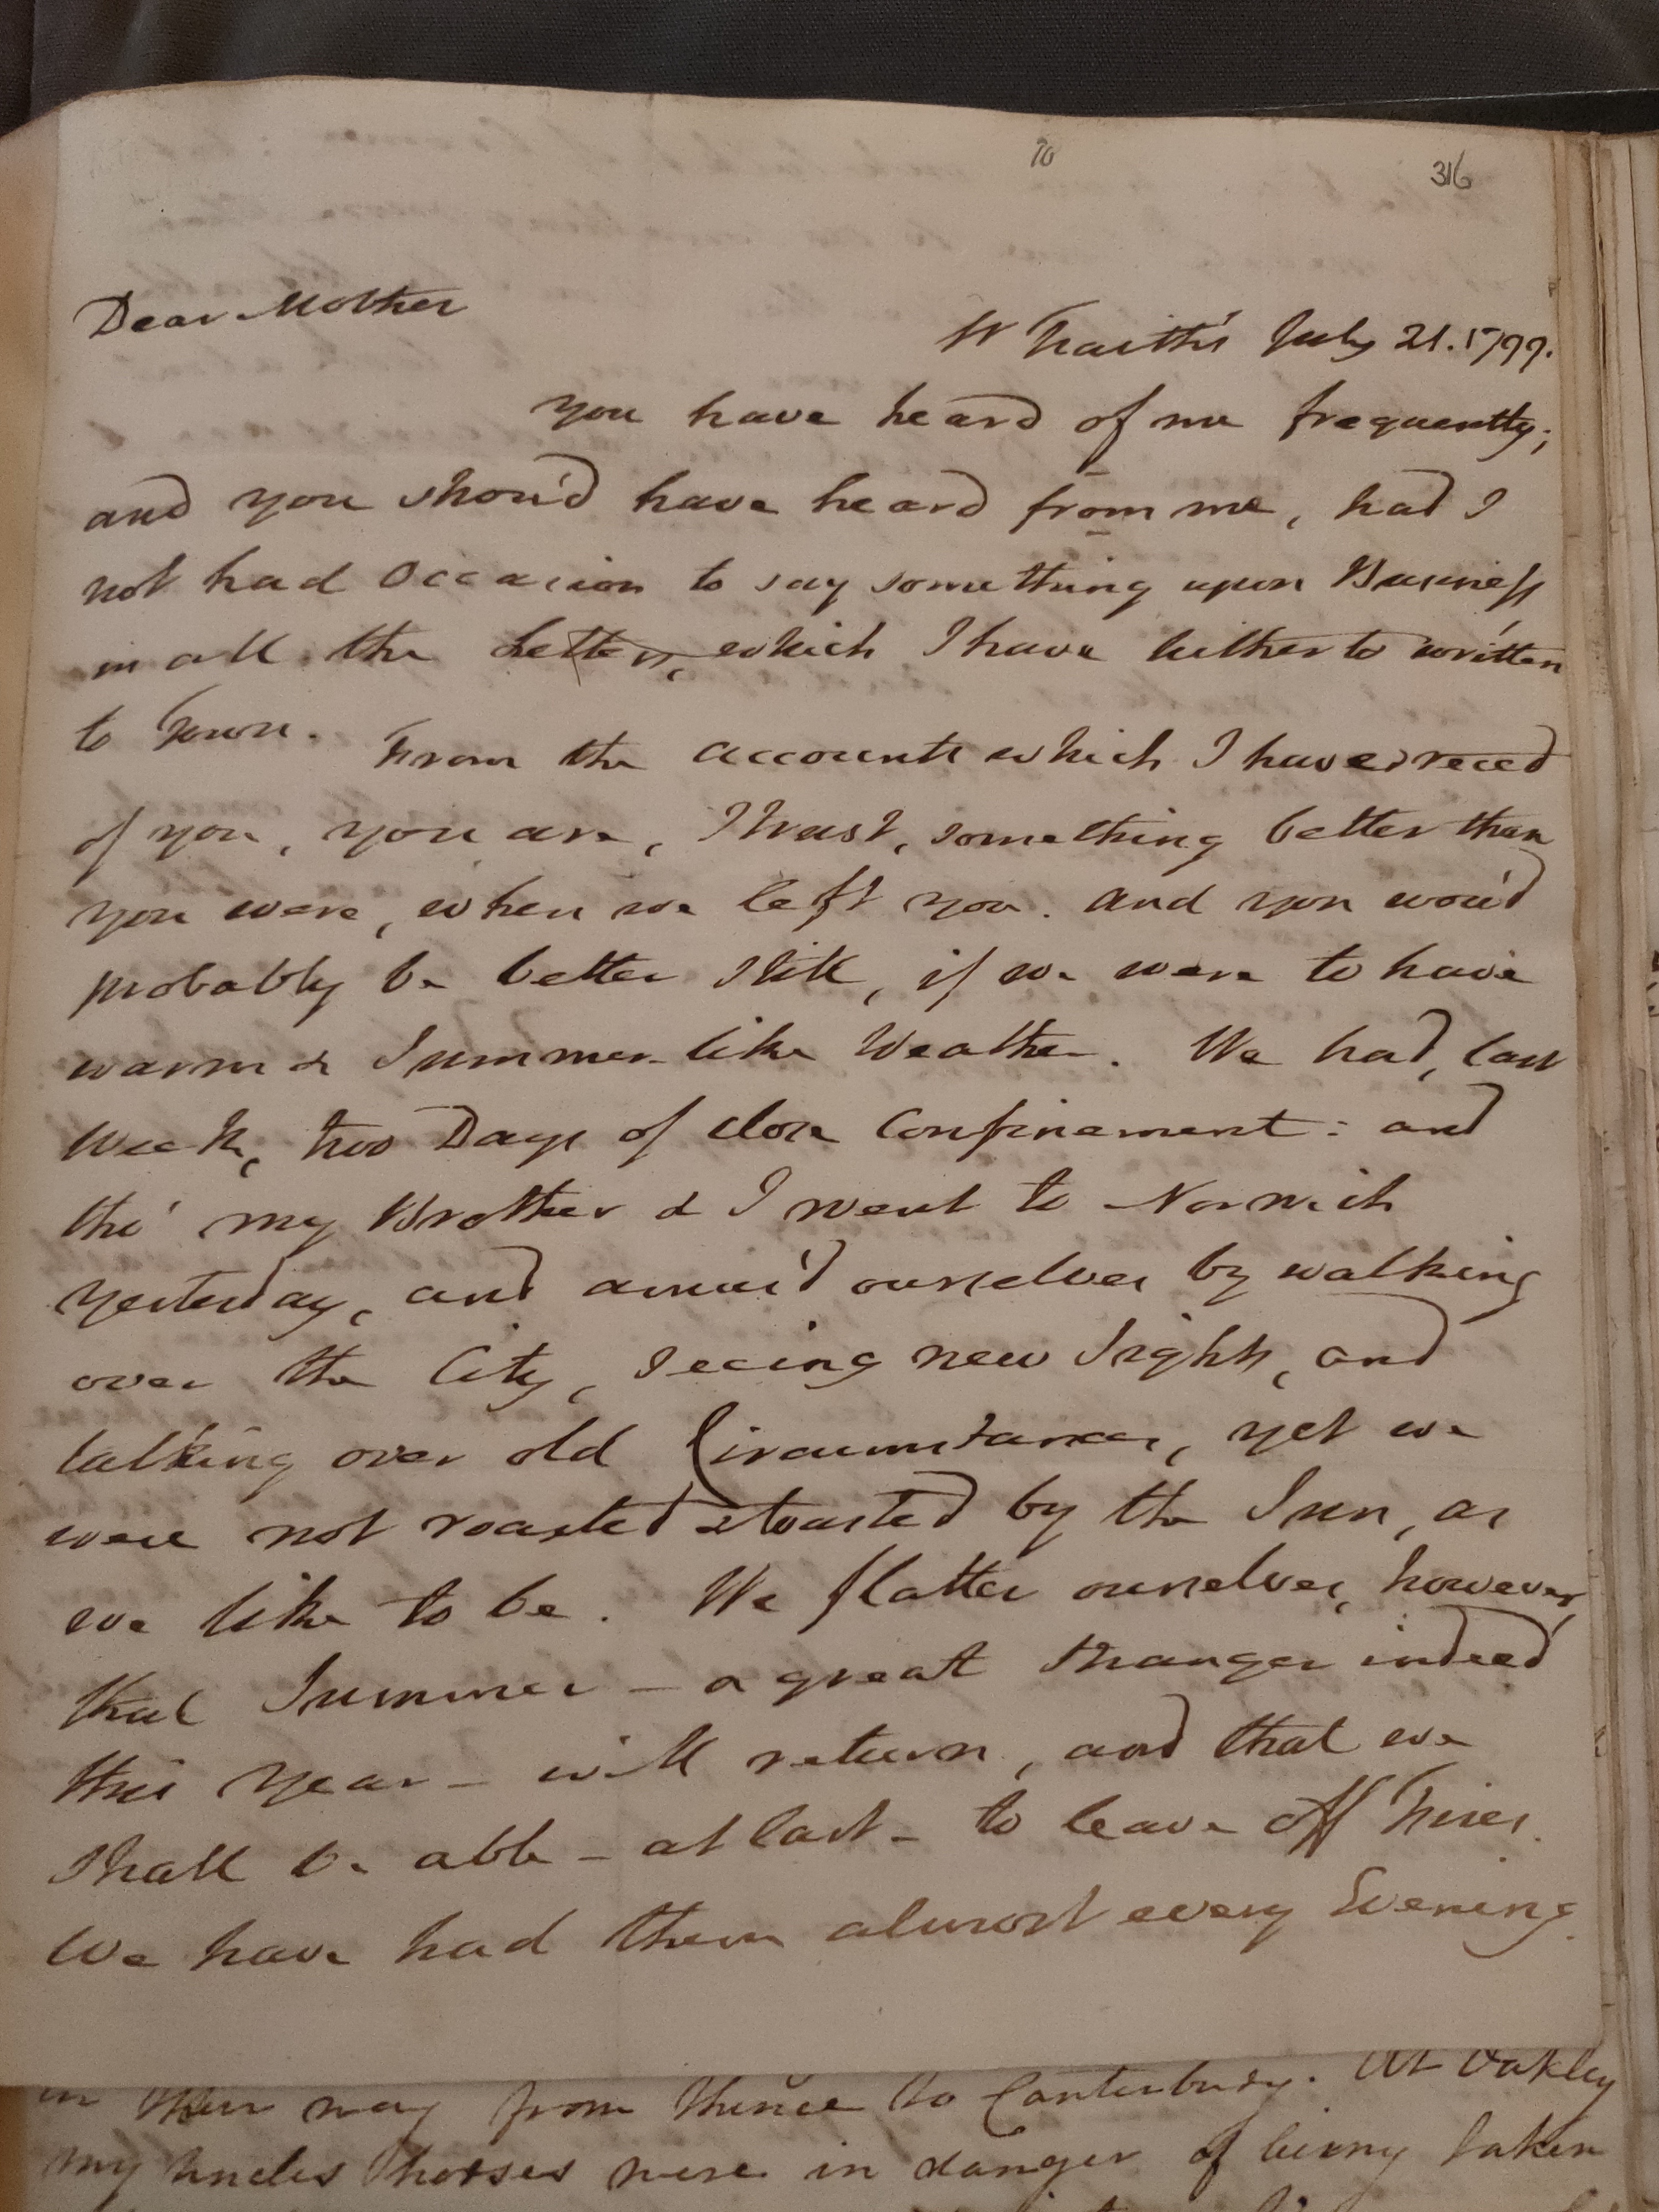 70
316
Dear Mother
July 21. 1799.
you have heard of me frequently;
and you shou'd have heard from me, had I
not had Occasion to say something upon Business
in all the Letters, which I have hitherto written
to Town. From the accounts which I have reced
of you, you are, I trust, something better than
you were, when we left you. and you wou'd
probably be better still, if we were to have
warm & Summer-like Weather. We had, last
Week, two Days of close Confinement: and
tho' my Brother & I went to Norwich
yesterday, and amus'd ourselves by walking
over the City, seeing new Sights, and
talking over old Circumstances, yet we
were not roasted & toasted by the Sun, as
we like to be. We flatter ourselves, however,
that Summer - a great Stranger indeed
this Year - will return, and that we
shall be able - at last - to leave off Fires.
We have had them almost every Evening.
in their way from thence to Canterbury. At Oakley
my Uncles horses were in danger of being taken